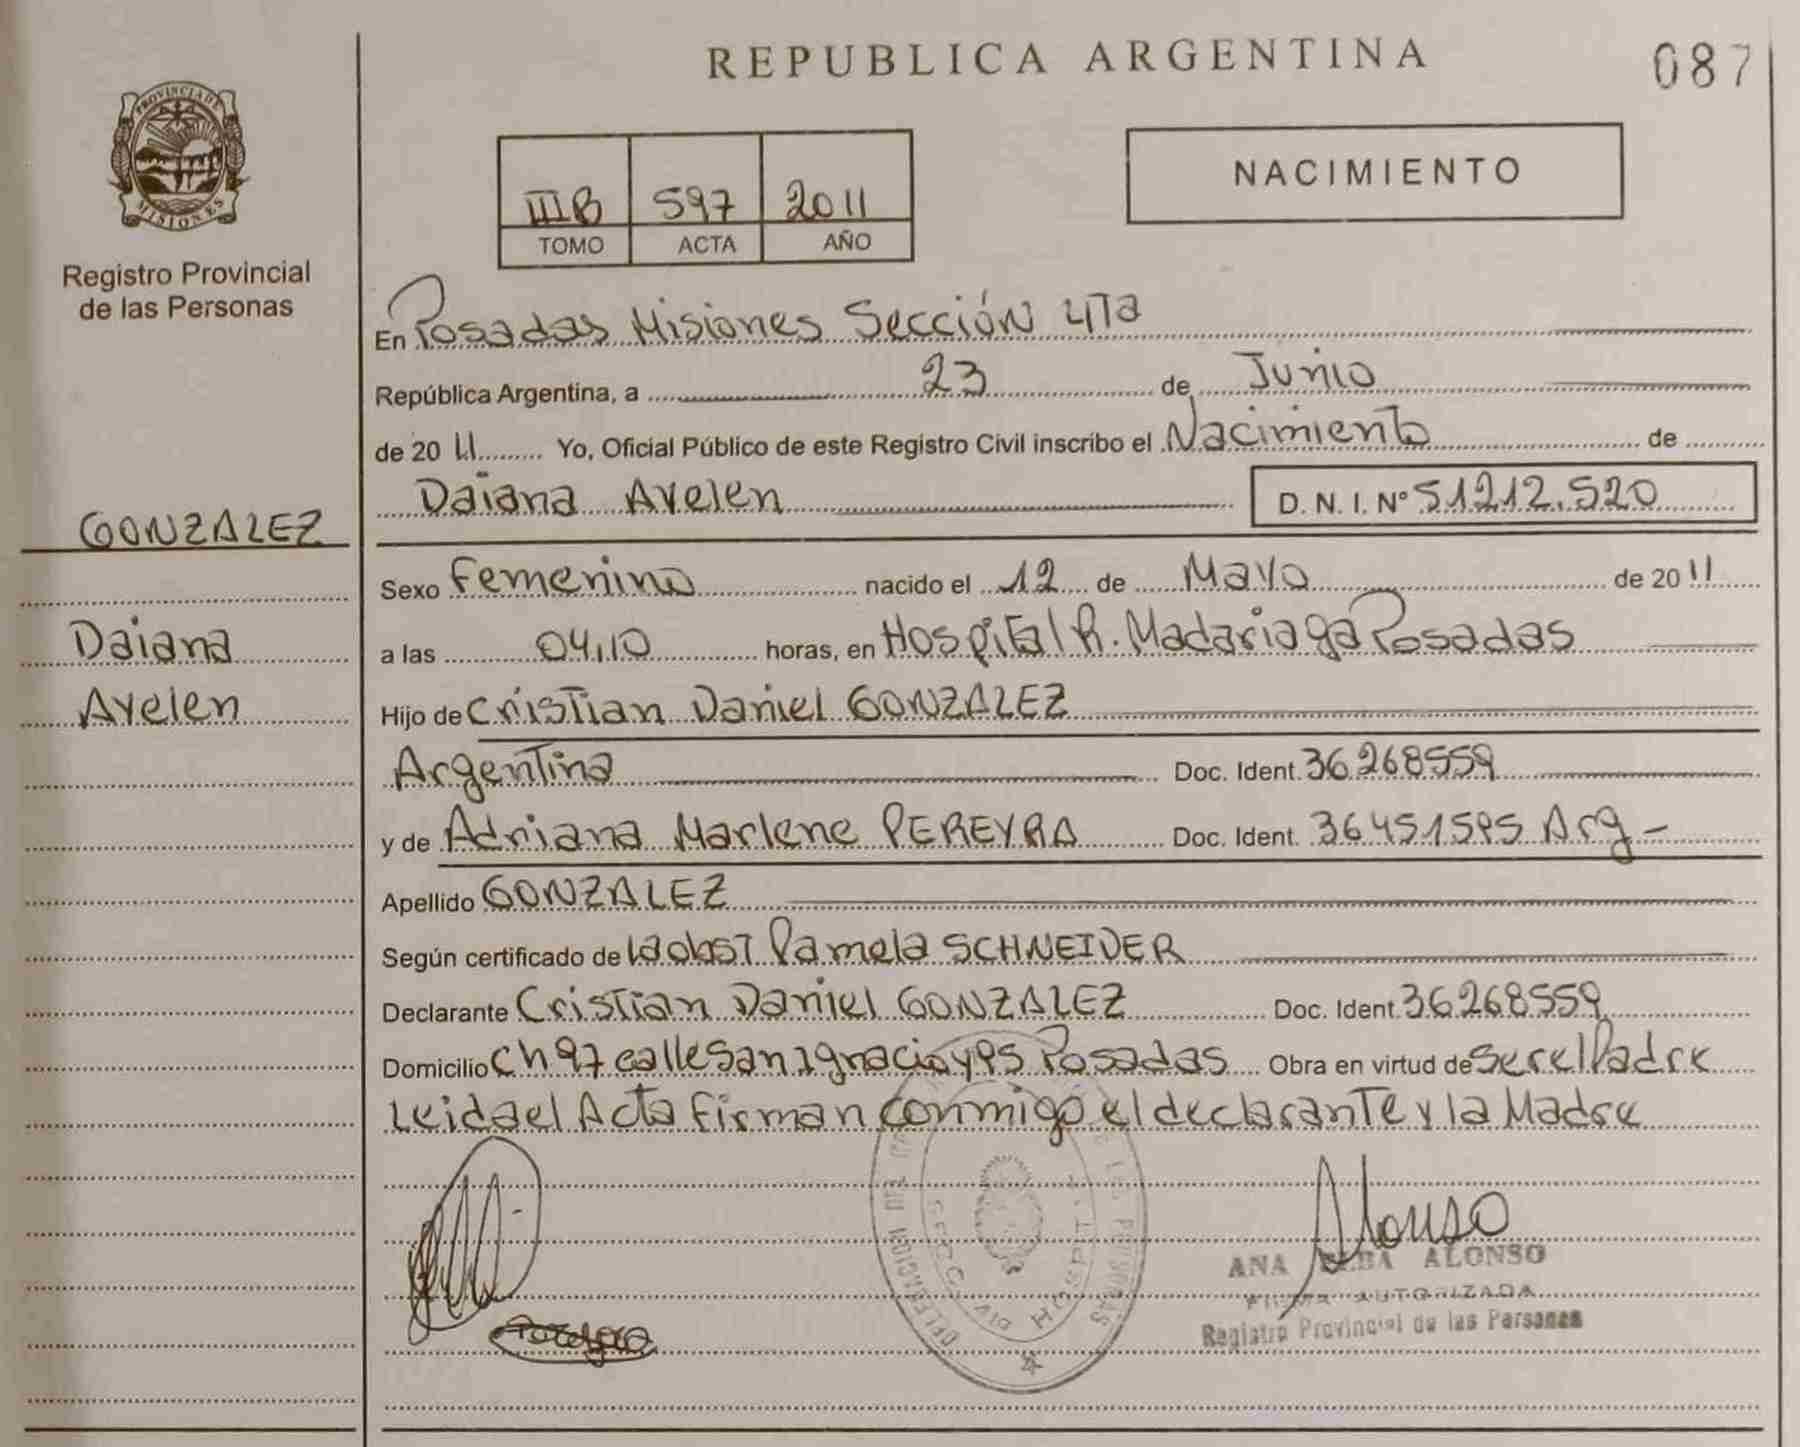 REPUBLICA ARGENTINA
087
PROVINCIA DE
MISIONES
Registro Provincial
de las Personas
IIIB 597 2011
TOMO ACTA AÑO
NACIMIENTO
En Posadas Misiones Sección 4Ta
República Argentina, a 23 de Junio
de 2011 Yo, Oficial Público de este Registro Civil inscribo el Nacimiento de
Daiana Ayelen D. N. I. Nº 51212.520
GONZALEZ
Daiana
Ayelen
Sexo Femenino nacido el 12 de Mayo de 2011
a las 04,10 horas, en Hospital R. Madariaga Posadas
Hijo de Cristian Daniel GONZALEZ
Argentina Doc. Ident. 36268559
y de Adriana Marlene PEREYRA Doc. Ident. 36451595 Arg -
Apellido GONZALEZ
Según certificado de la obsT Pamela SCHNEIDER
Declarante Cristian Daniel GONZALEZ Doc. Ident 36268559
Domicilio Ch 97 calle San Ignacio y 95 Posadas Obra en virtud de ser el Padre
Leida el Acta Firman conmigo el declarante y la Madre
Alonso
ANA ELBA ALONSO
FIRMA AUTORIZADA
Registro Provincial de las Personas